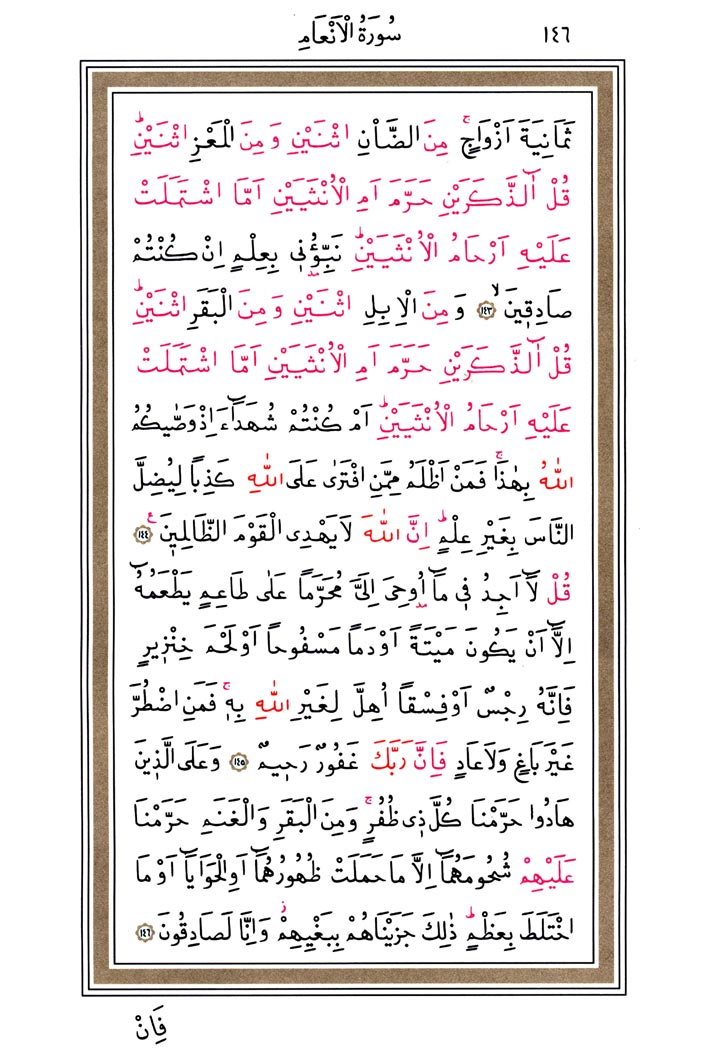 سُورَةُ الْاَنْعَامِ ١٤٦
ثَمَانِيَةَ اَزْوَاجٍۚ مِنَ الضَّاْنِ اثْنَيْنِ وَمِنَ الْمَعْزِ اثْنَيْنِۜ
قُلْ آٰلذَّكَرَيْنِ حَرَّمَ اَمِ الْاُنْثَيَيْنِ اَمَّا اشْتَمَلَتْ
عَلَيْهِ اَرْحَامُ الْاُنْثَيَيْنِۜ نَبِّؤُ۫ن۪ي بِعِلْمٍ اِنْ كُنْتُمْ
صَادِق۪ينَۙ ﴿١٤٣﴾ وَمِنَ الْاِبِلِ اثْنَيْنِ وَمِنَ الْبَقَرِ اثْنَيْنِۜ
قُلْ آٰلذَّكَرَيْنِ حَرَّمَ اَمِ الْاُنْثَيَيْنِ اَمَّا اشْتَمَلَتْ
عَلَيْهِ اَرْحَامُ الْاُنْثَيَيْنِۜ اَمْ كُنْتُمْ شُهَدَٓاءَ اِذْ وَصّٰيكُمُ
اللّٰهُ بِهٰذَاۚ فَمَنْ اَظْلَمُ مِمَّنِ افْتَرٰى عَلَى اللّٰهِ كَذِبًا لِيُضِلَّ
النَّاسَ بِغَيْرِ عِلْمٍۜ اِنَّ اللّٰهَ لَا يَهْدِي الْقَوْمَ الظَّالِم۪ينَ۟ ﴿١٤٤﴾
قُلْ لَٓا اَجِدُ ف۪ي مَٓا اُو۫حِيَ اِلَيَّ مُحَرَّمًا عَلٰى طَاعِمٍ يَطْعَمُهُٓ
اِلَّٓا اَنْ يَكُونَ مَيْتَةً اَوْ دَمًا مَسْفُوحًا اَوْ لَحْمَ خِنْز۪يرٍ
فَاِنَّهُ رِجْسٌ اَوْ فِسْقًا اُهِلَّ لِغَيْرِ اللّٰهِ بِه۪ۚ فَمَنِ اضْطُرَّ
غَيْرَ بَاغٍ وَلَا عَادٍ فَاِنَّ رَبَّكَ غَفُورٌ رَح۪يمٌ ﴿١٤٥﴾ وَعَلَى الَّذ۪ينَ
هَادُوا حَرَّمْنَا كُلَّ ذ۪ي ظُفُرٍۚ وَمِنَ الْبَقَرِ وَالْغَنَمِ حَرَّمْنَا
عَلَيْهِمْ شُحُومَهُمَٓا اِلَّا مَا حَمَلَتْ ظُهُورُهُمَٓا اَوِ الْحَوَايَٓا اَوْ مَا
اخْتَلَطَ بِعَظْمٍۜ ذٰلِكَ جَزَيْنَاهُمْ بِبَغْيِهِمْۘ وَاِنَّا لَصَادِقُونَ ﴿١٤٦﴾
فَاِنْ